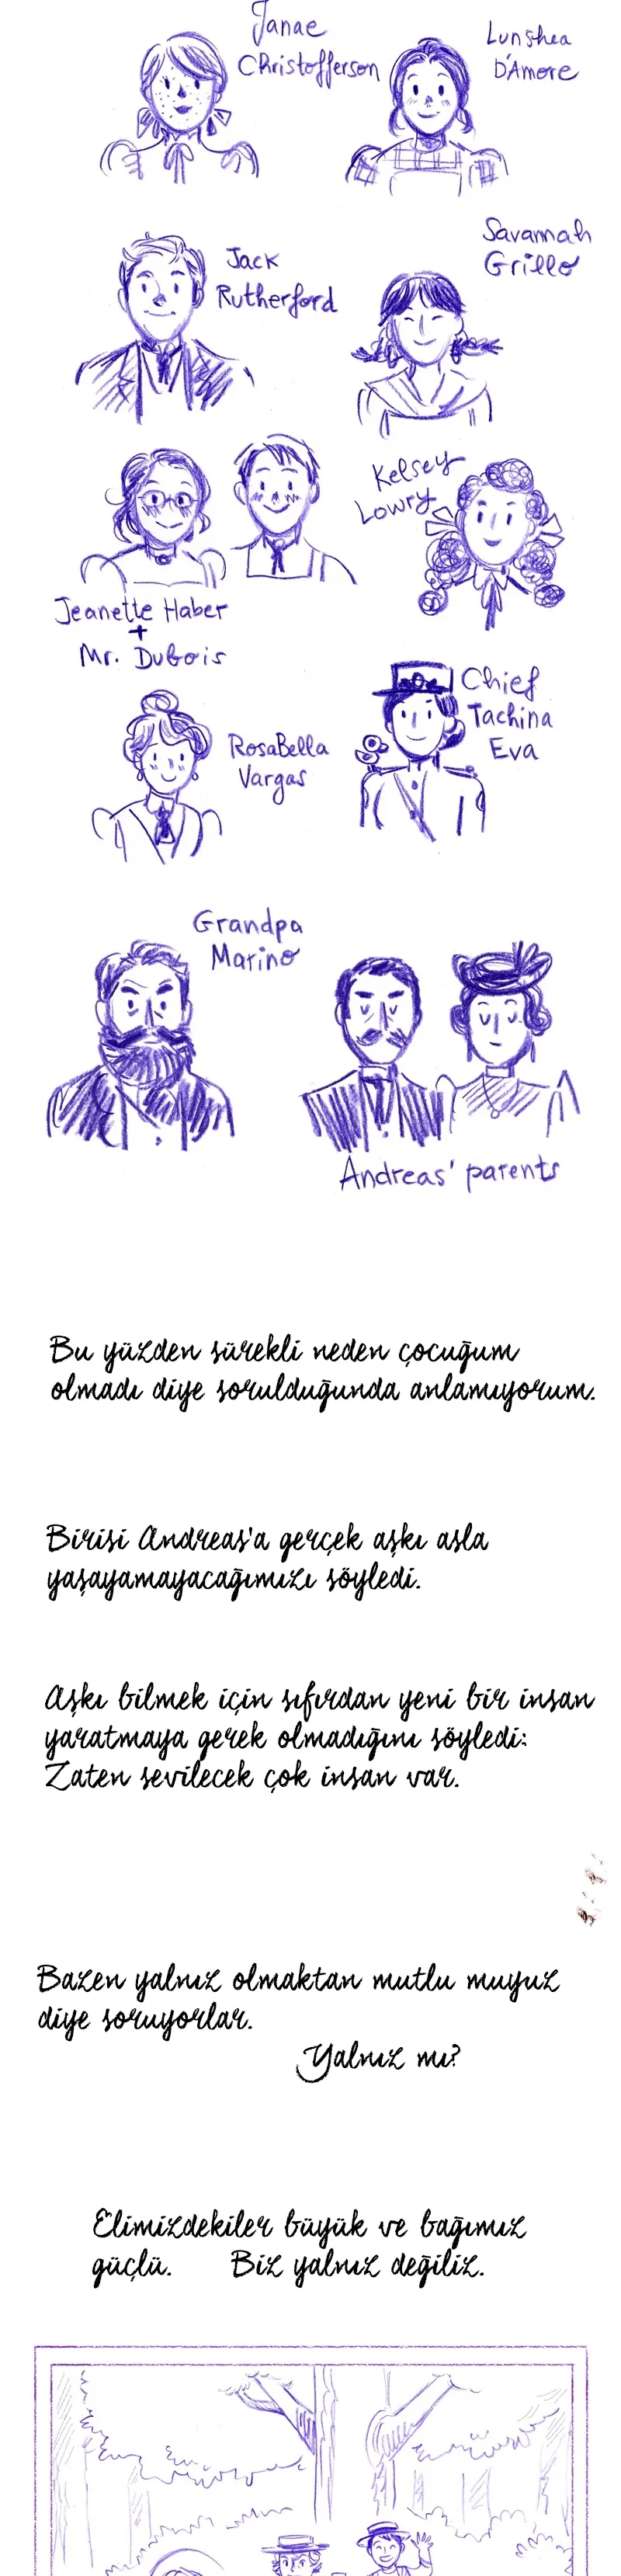 Janae
Christofferson
Lunshea
D'Amore
Jack
Rutherford
Savannah
Grillo
Jeanette Haber
+
Mr. Dubois
Kelsey
Lowry
RosaBella
Vargas
Chief
Tachina
Eva
Grandpa
Marino
Andreas' parents
Bu yüzden sürekli neden çocuğum
olmadı diye sorulduğunda anlamıyorum.
Birisi Andreas'a gerçek aşkı asla
yaşayamayacağımızı söyledi.
Aşkı bilmek için sıfırdan yeni bir insan
yaratmaya gerek olmadığını söyledi:
Zaten sevilecek çok insan var.
Bazen yalnız olmaktan mutlu muyuz
diye soruyorlar.
Yalnız mı?
Elimizdekiler büyük ve bağımız
güçlü. Biz yalnız değiliz.